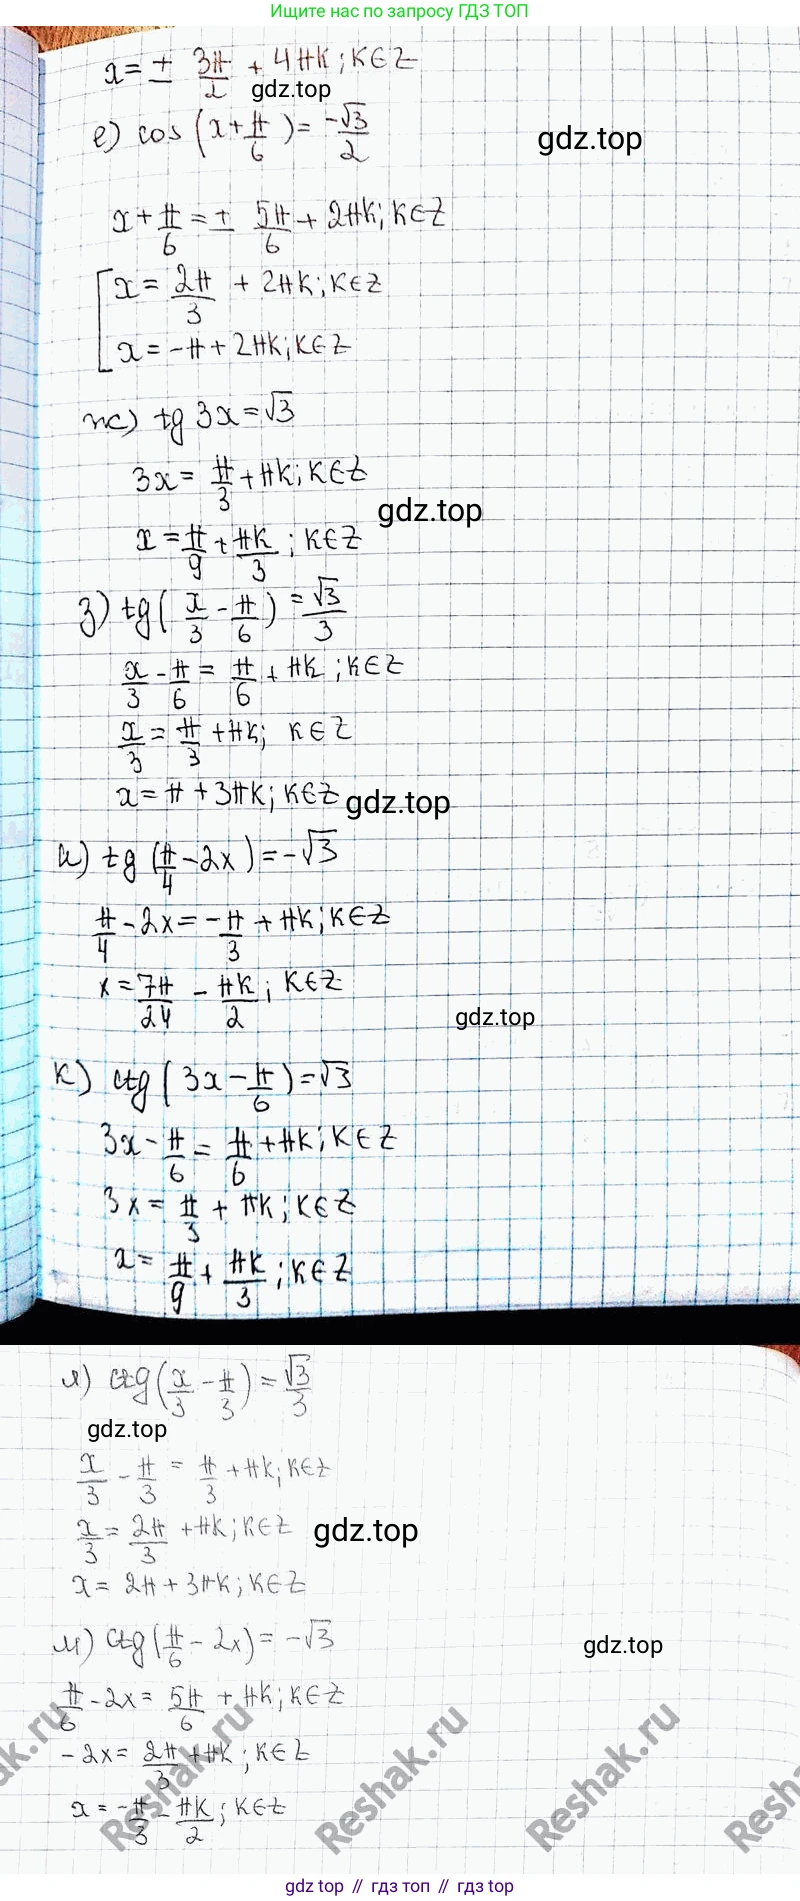 Ищите нас по запросу ГДЗ ТОП
x = ± 3π/2 + 4πk; k∈Z
gdz.top
е) cos (x + π/6) = -√3/2
gdz.top
x + π/6 = ± 5π/6 + 2πk; k∈Z
[ x = 2π/3 + 2πk; k∈Z
x = -π + 2πk; k∈Z
ж) tg 3x = √3
3x = π/3 + πk; k∈Z
gdz.top
x = π/9 + πk/3; k∈Z
з) tg( x/3 - π/6 ) = √3/3
x/3 - π/6 = π/6 + πk; k∈Z
x/3 = π/3 + πk; k∈Z
x = π + 3πk; k∈Z
gdz.top
и) tg (π/4 - 2x) = -√3
π/4 - 2x = -π/3 + πk; k∈Z
x = 7π/24 - πk/2; k∈Z
gdz.top
к) ctg( 3x - π/6 ) = √3
3x - π/6 = π/6 + πk; k∈Z
3x = π/3 + πk; k∈Z
x = π/9 + πk/3; k∈Z
л) ctg(x/3 - π/3) = √3/3
gdz.top
x/3 - π/3 = π/3 + πk; k∈Z
x/3 = 2π/3 + πk; k∈Z
gdz.top
x = 2π + 3πk; k∈Z
м) ctg(π/6 - 2x) = -√3
gdz.top
π/6 - 2x = 5π/6 + πk; k∈Z
-2x = 2π/3 + πk; k∈Z
x = -π/3 - πk/2; k∈Z
Reshak.ru
Reshak.ru
Reshak.ru
gdz.top // гдз топ // гдз.top